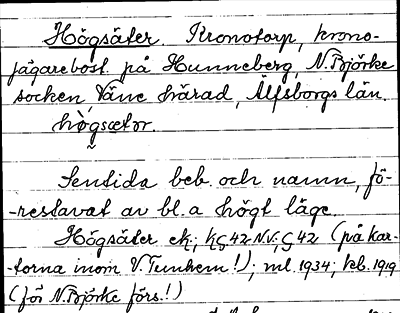 Högsäter. Kronotorp, krono-
jägarebost. på Hunneberg, N. Björke
socken, Väne härad, Älfsborgs län.
hògsætər.
Sentida beb. och namn, fö-
-restavat av bl.a högt läge.
Högsäter ek; hS 42 N.V; S 42 (på kar-
-torna inom V. Tunhem!); ml. 1934; hb. 1919
(för N. Björke förs.!)